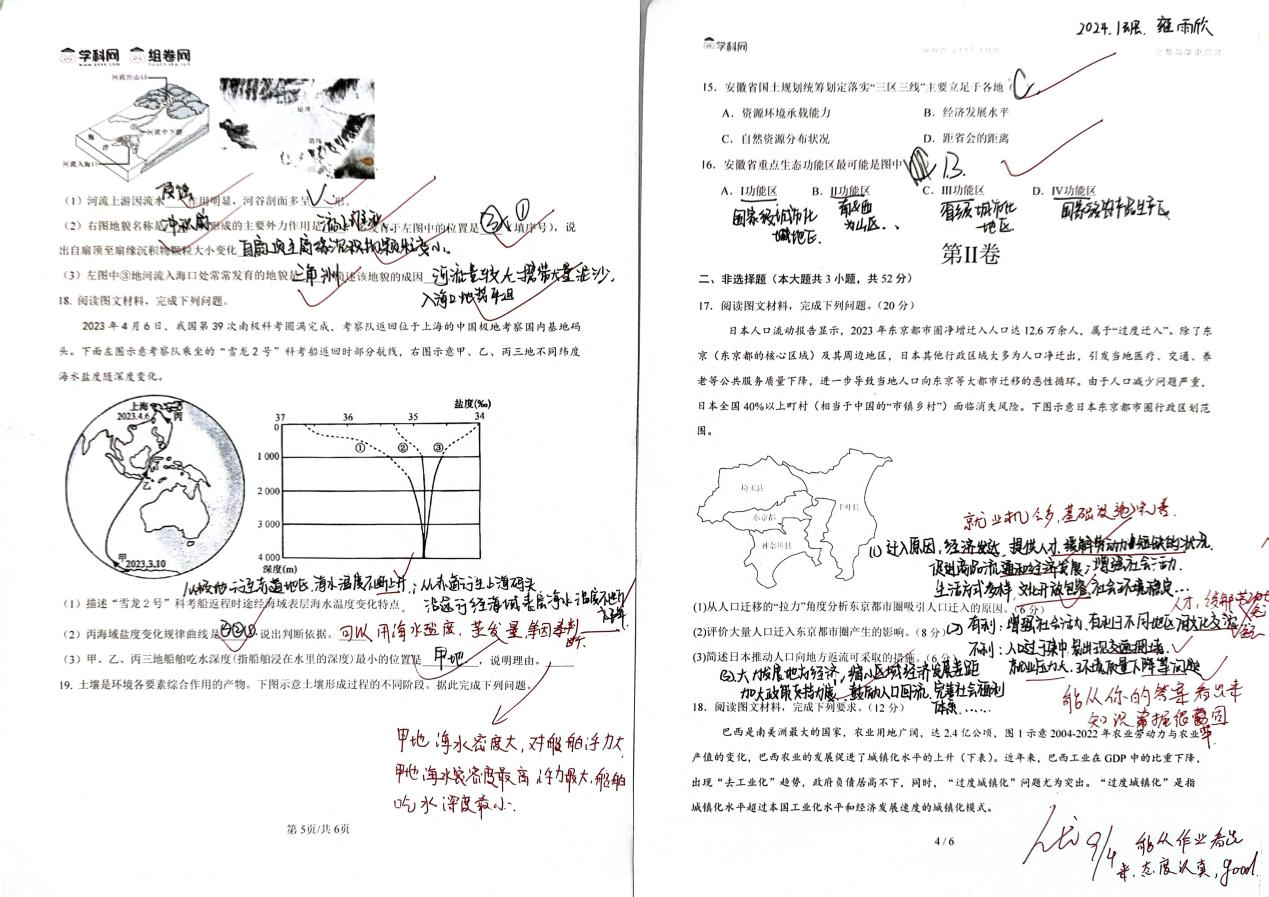 学科网 组卷网
河流出山口
河流中下游
河流入海口
(1)河流上游因流水 侵蚀 作用明显，河谷剖面多呈 V 形。
(2)右图地貌名称是 冲积扇 形成的主要外力作用是 流水堆积 发育于左图中的位置是 ① (填序号)，说
出自扇顶至扇缘沉积物颗粒大小变化 自扇顶至扇缘沉积物颗粒变小。
(3)左图中③地河流入海口处常常发育的地貌是 三角洲 简述该地貌的成因 河流量较大，携带大量泥沙，
入海口地势平坦
18. 阅读图文材料，完成下列问题。
2023年4月6日，我国第39次南极科考圆满完成，考察队返回位于上海的中国极地考察国内基地码
头。下面左图示意考察队乘坐的“雪龙2号”科考船返回时部分航线，右图示意甲、乙、丙三地不同纬度
海水盐度随深度变化。
上海
2023.4.6
丙
乙
甲
2023.3.10
盐度(‰)
37 36 35 34
0
1 000
2 000
3 000
4 000
深度(m)
① ② ③
从极地 赤道地区，海水温度不断上升；从赤道 上海码头
沿途 经海域表层海水温度不断
下降。
(1)描述“雪龙2号”科考船返程时途经海域表层海水温度变化特点。
(2)丙海域盐度变化规律曲线是 ，说出判断依据。 可以用海水盐度，蒸发量等因素判
断。
(3)甲、乙、丙三地船舶吃水深度(指船舶浸在水里的深度)最小的位置是 甲地 ，说明理由。
19. 土壤是环境各要素综合作用的产物。下图示意土壤形成过程的不同阶段。据此完成下列问题。
甲地海水密度大，对船舶浮力大
甲地海水密度最高，浮力最大，船舶
吃水深度最小。
第5页/共6页
2024.1班 雍雨欣
学科网
15. 安徽省国土规划统筹划定落实“三区三线”主要立足于各地( C
A. 资源环境承载能力 B. 经济发展水平
C. 自然资源分布状况 D. 距省会的距离
16. 安徽省重点生态功能区最可能是图中 B.
A. I功能区 B. II功能区 C. III功能区 D. IV功能区
国家级城市化 地区. 南 西 为山区. 省级城市化 地区 国家级农产品生产区
第II卷
二、非选择题（本大题共3小题，共52分）
17. 阅读图文材料，完成下列问题。(20分)
日本人口流动报告显示，2023年东京都市圈净增迁入人口达12.6万余人，属于“过度迁入”。除了东
京（东京都的核心区域）及其周边地区，日本其他行政区域大多为人口净迁出，引发当地医疗、交通、养
老等公共服务质量下降，进一步导致当地人口向东京等大都市迁移的恶性循环。由于人口减少问题严重，
日本全国40%以上町村（相当于中国的“市镇乡村”）面临消失风险。下图示意日本东京都市圈行政区划范
围。
埼玉县
东京都
千叶县
神奈川县
就业机会多，基础设施完善.
(1)迁入原因，经济发达，提供人才，缓解劳动力短缺的状况，
促进商品流通和经济发展；增强社会活力.
生活方式多样，文化开放包容，社会环境稳定...
(1)从人口迁移的“拉力”角度分析东京都市圈吸引人口迁入的原因。(6分)
(2)评价大量人口迁入东京都市圈产生的影响。(8分)
(2)有利：增强社会活力，有利于不同地区的文化交流
不利：人口过于集中易出现交通拥堵，
就业压力大，环境质量下降等问题
(3)简述日本推动人口向地方返流可采取的措施。(6分)
(3)大力发展地方经济，缩小区域经济发展差距
加大政策支持力度，鼓励人口回流，完善社会福利
体系......
能从你的答案看出来
知识掌握很牢固
18. 阅读图文材料，完成下列要求。(12分)
巴西是南美洲最大的国家，农业用地广阔，达2.4亿公顷，图1示意2004-2022年农业劳动力与农业
产值的变化，巴西农业的发展促进了城镇化水平的上升（下表）。近年来，巴西工业在GDP中的比重下降，
出现“去工业化”趋势，政府负债居高不下，同时，“过度城镇化”问题尤为突出。“过度城镇化”是指
城镇化水平超过本国工业化水平和经济发展速度的城镇化模式。
4 / 6
优 9/4 能从作业看出
来，态度认真，good.